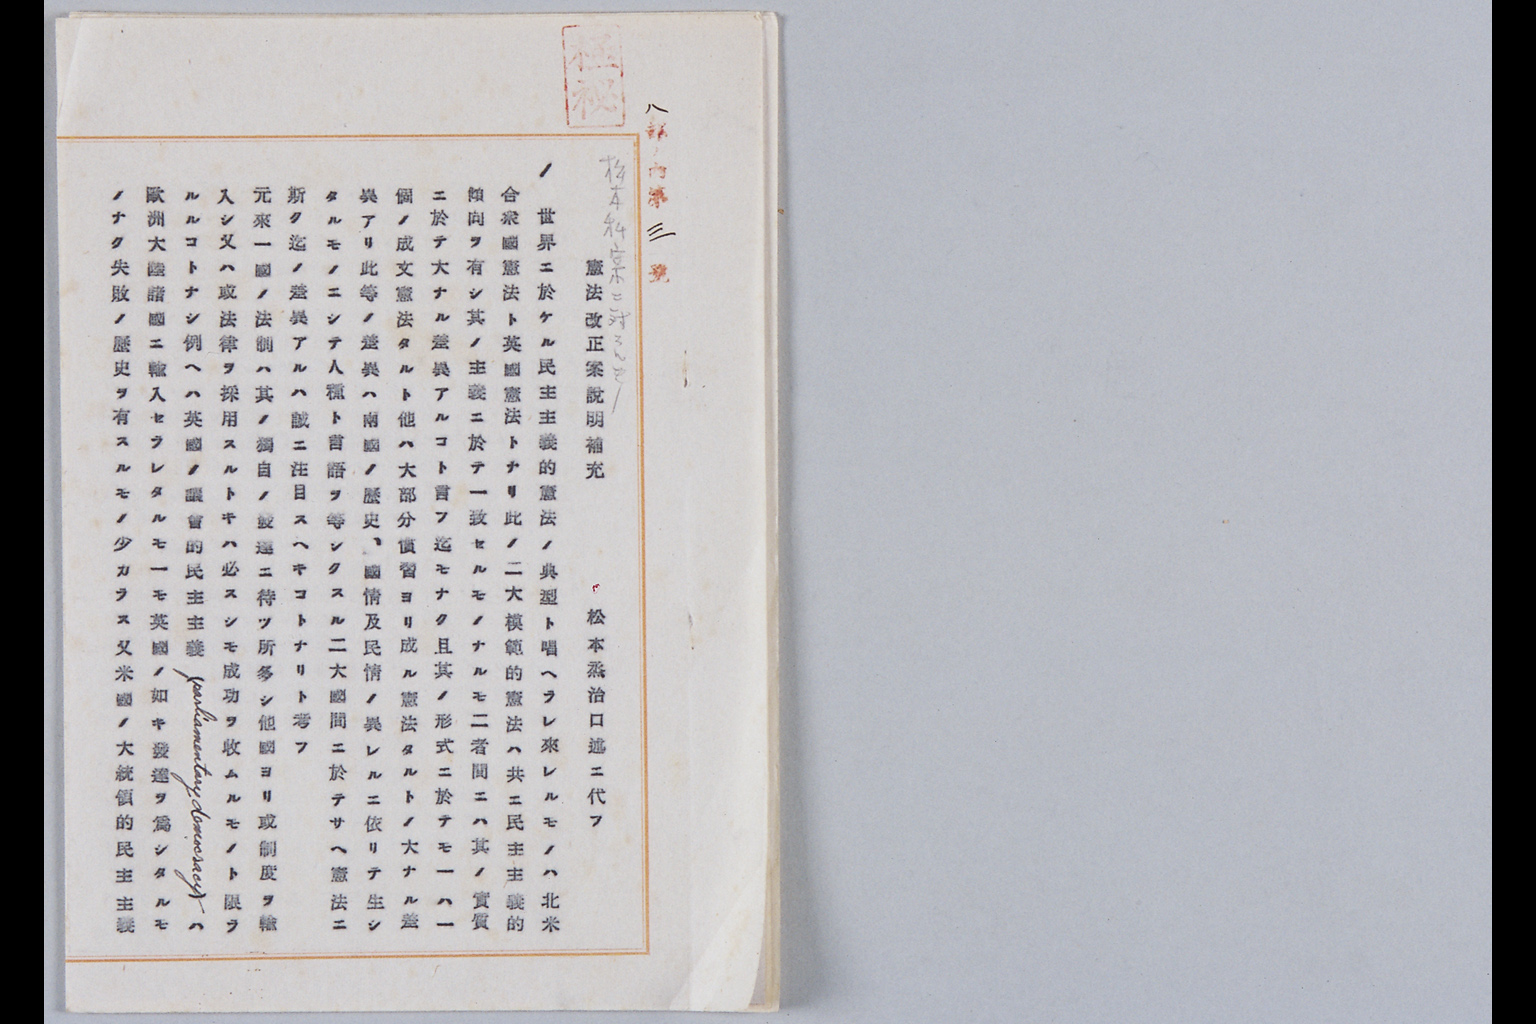 極秘
八部ノ内第三號
憲法改正案說明補充 松本烝治口述ニ代フ
ノ 世界ニ於ケル民主主義的憲法ノ典型ト唱ヘラレ來レルモノハ北米
合衆國憲法ト英國憲法トナリ此ノ二大模範的憲法ハ共ニ民主主義的
傾向ヲ有シ其ノ主義ニ於テ一致セルモノナルモ二者間ニハ其ノ實質
ニ於テ大ナル差異アルコト言フ迄モナク且其ノ形式ニ於テモ一ハ一
個ノ成文憲法タルト他ハ大部分慣習ヨリ成ル憲法タルトノ大ナル差
異アリ此等ノ差異ハ兩國ノ歷史、國情及民情ノ異レルニ依リテ生シ
タルモノニシテ人種ト言語ヲ等シクスル二大國間ニ於テサヘ憲法ニ
斯ク迄ノ差異アルハ誠ニ注目スヘキコトナリト考フ
元來一國ノ法制ハ其ノ獨自ノ發達ニ待ツ所多シ他國ヨリ或制度ヲ輸
入シ又ハ或法律ヲ採用スルトキハ必スシモ成功ヲ收ムルモノト限ラ
ルルコトナシ例ヘハ英國ノ議會的民主主義(parliamentary democracy)ハ
歐洲大陸諸國ニ輸入セラレタルモ一モ英國ノ如キ發達ヲ爲シタルモ
ノナク失敗ノ歷史ヲ有スルモノ少カラス又米國ノ大統領的民主主義